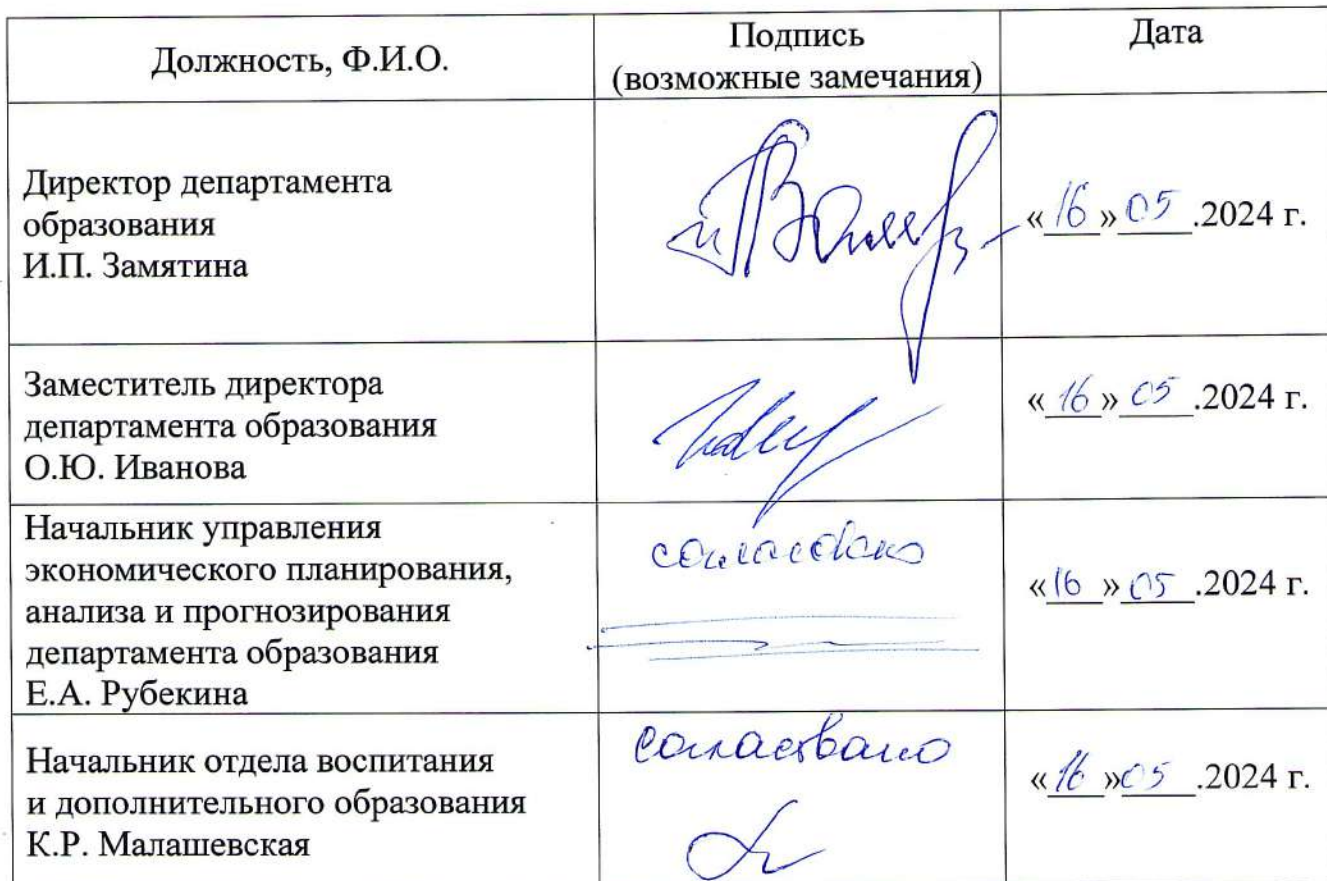 Должность, Ф.И.О.
Подпись
(возможные замечания)
Дата
Директор департамента
образования
И.П. Замятина
«16» 05.2024 г.
Заместитель директора
департамента образования
О.Ю. Иванова
«16» 05.2024 г.
Начальник управления
экономического планирования,
анализа и прогнозирования
департамента образования
Е.А. Рубекина
согласовано
«16» 05.2024 г.
Начальник отдела воспитания
и дополнительного образования
К.Р. Малашевская
согласовано
«16» 05.2024 г.